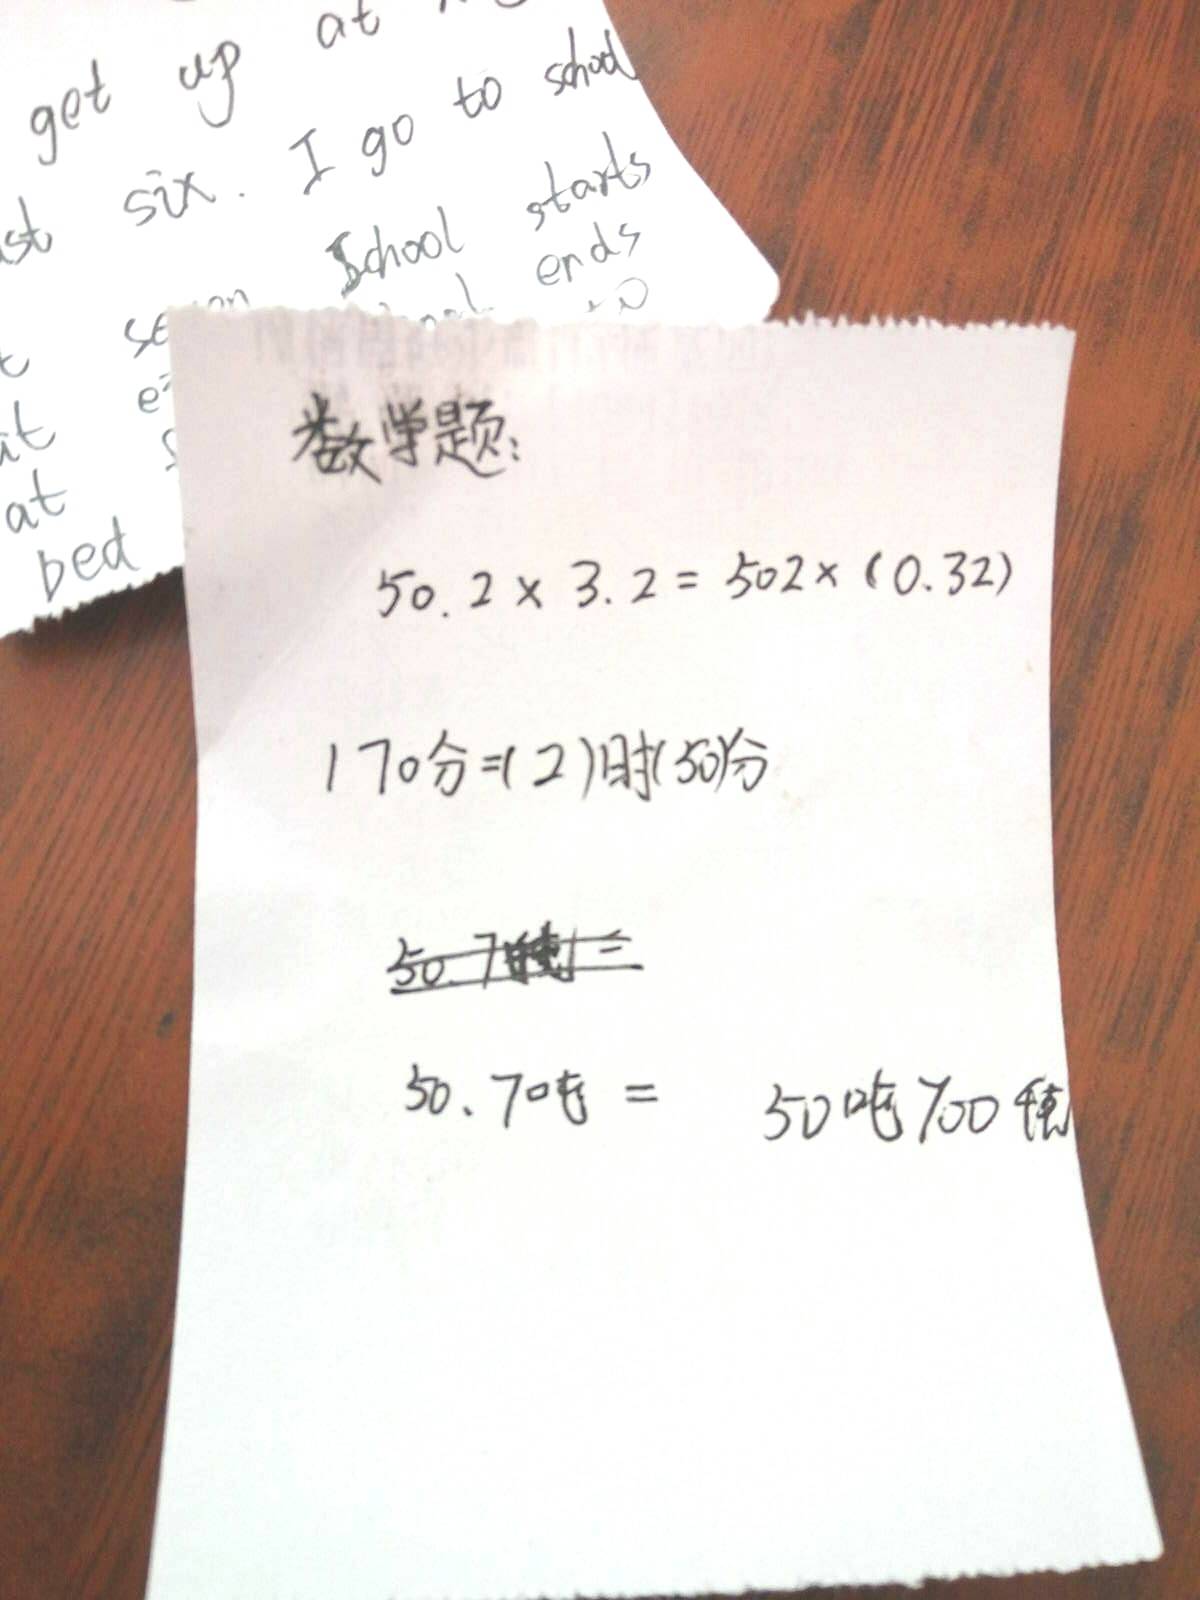 get up at
st six. I go to school
School starts
ends
it
at
bed
数学题:
50.2×3.2=502×(0.32)
170分=(2)时(50)分
50.7吨= 50吨700